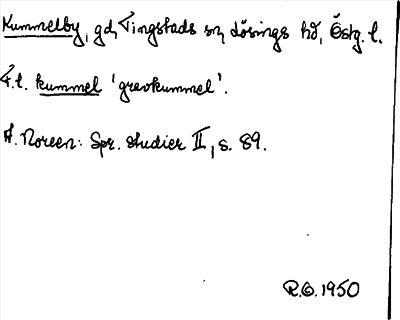 Kummelby, gd, Tingstads sn, Lösings hd, Östg. l.
T.t. kummel 'gravkummel'.
A. Noreen: Spr. studier II, s. 89.
R.O. 1950